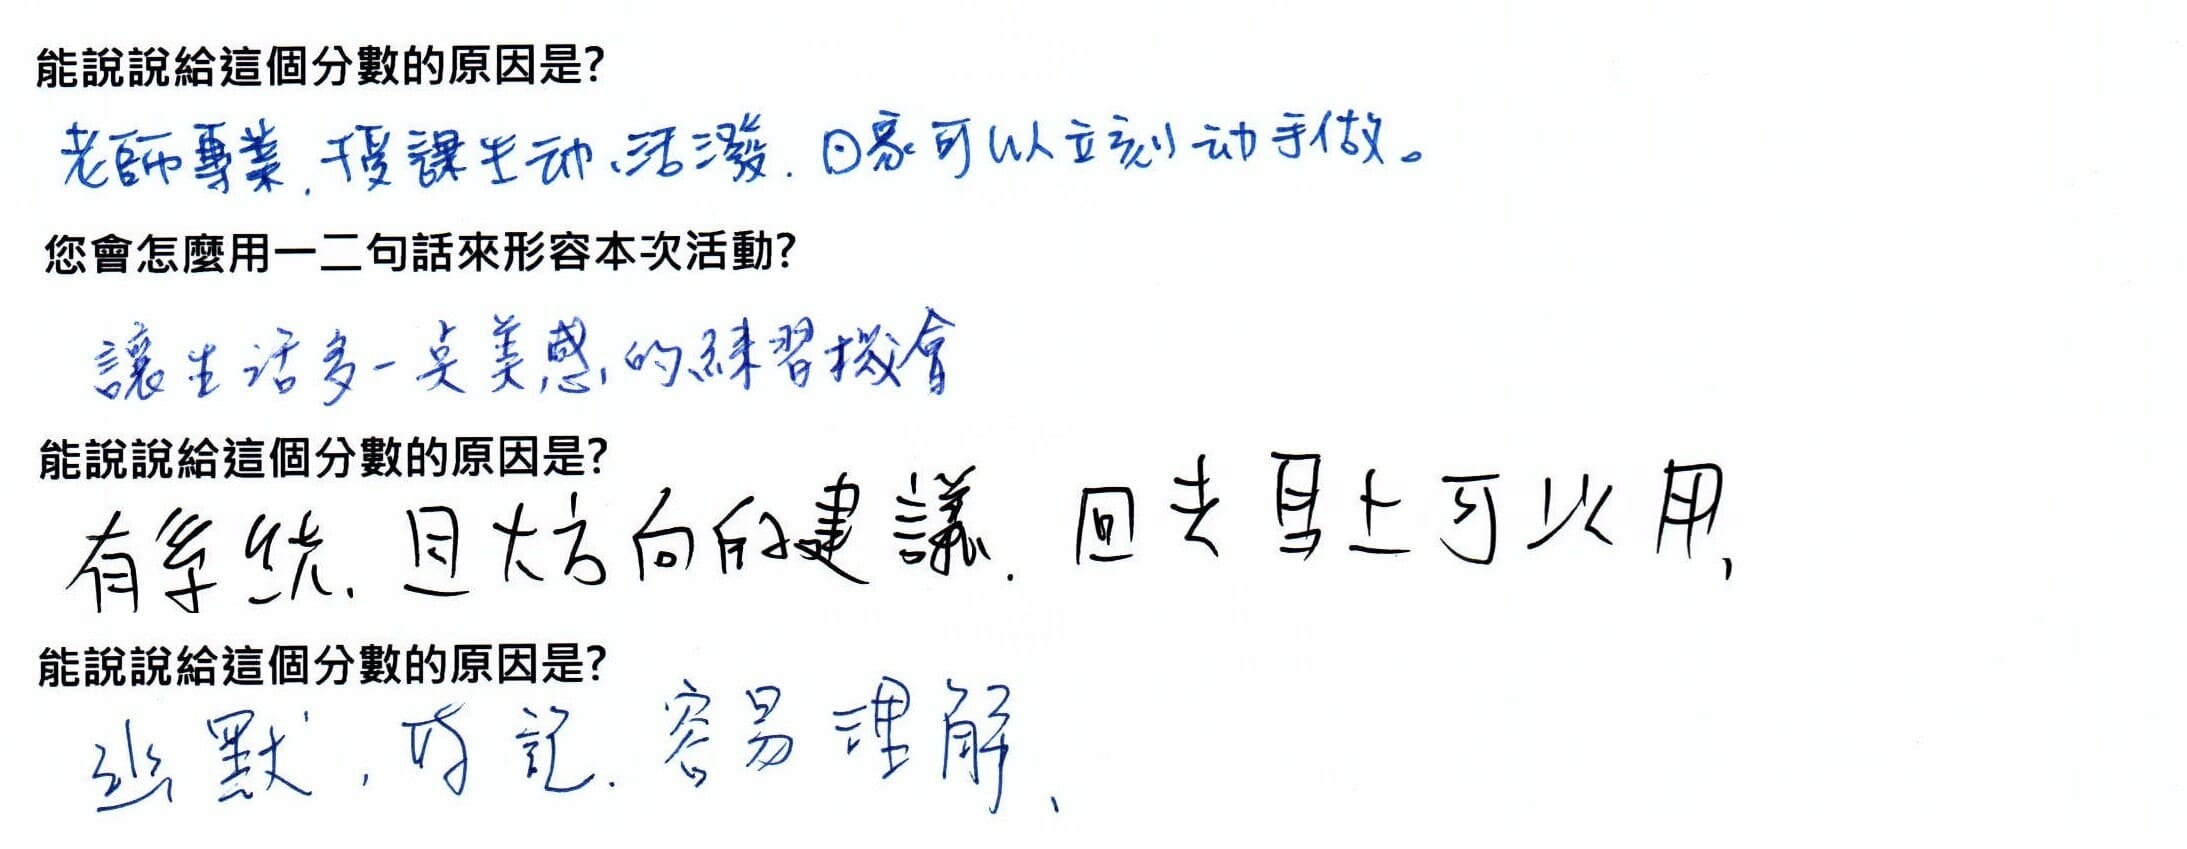 能說說給這個分數的原因是?
老師專業,授課生动、活潑.回家可以立刻动手做。
您會怎麼用一二句話來形容本次活動?
讓生活多一点美感的練習機會
能說說給這個分數的原因是?
有系統.且大方向的建議.回去馬上可以用,
能說說給這個分數的原因是?
幽默,好記.容易理解、